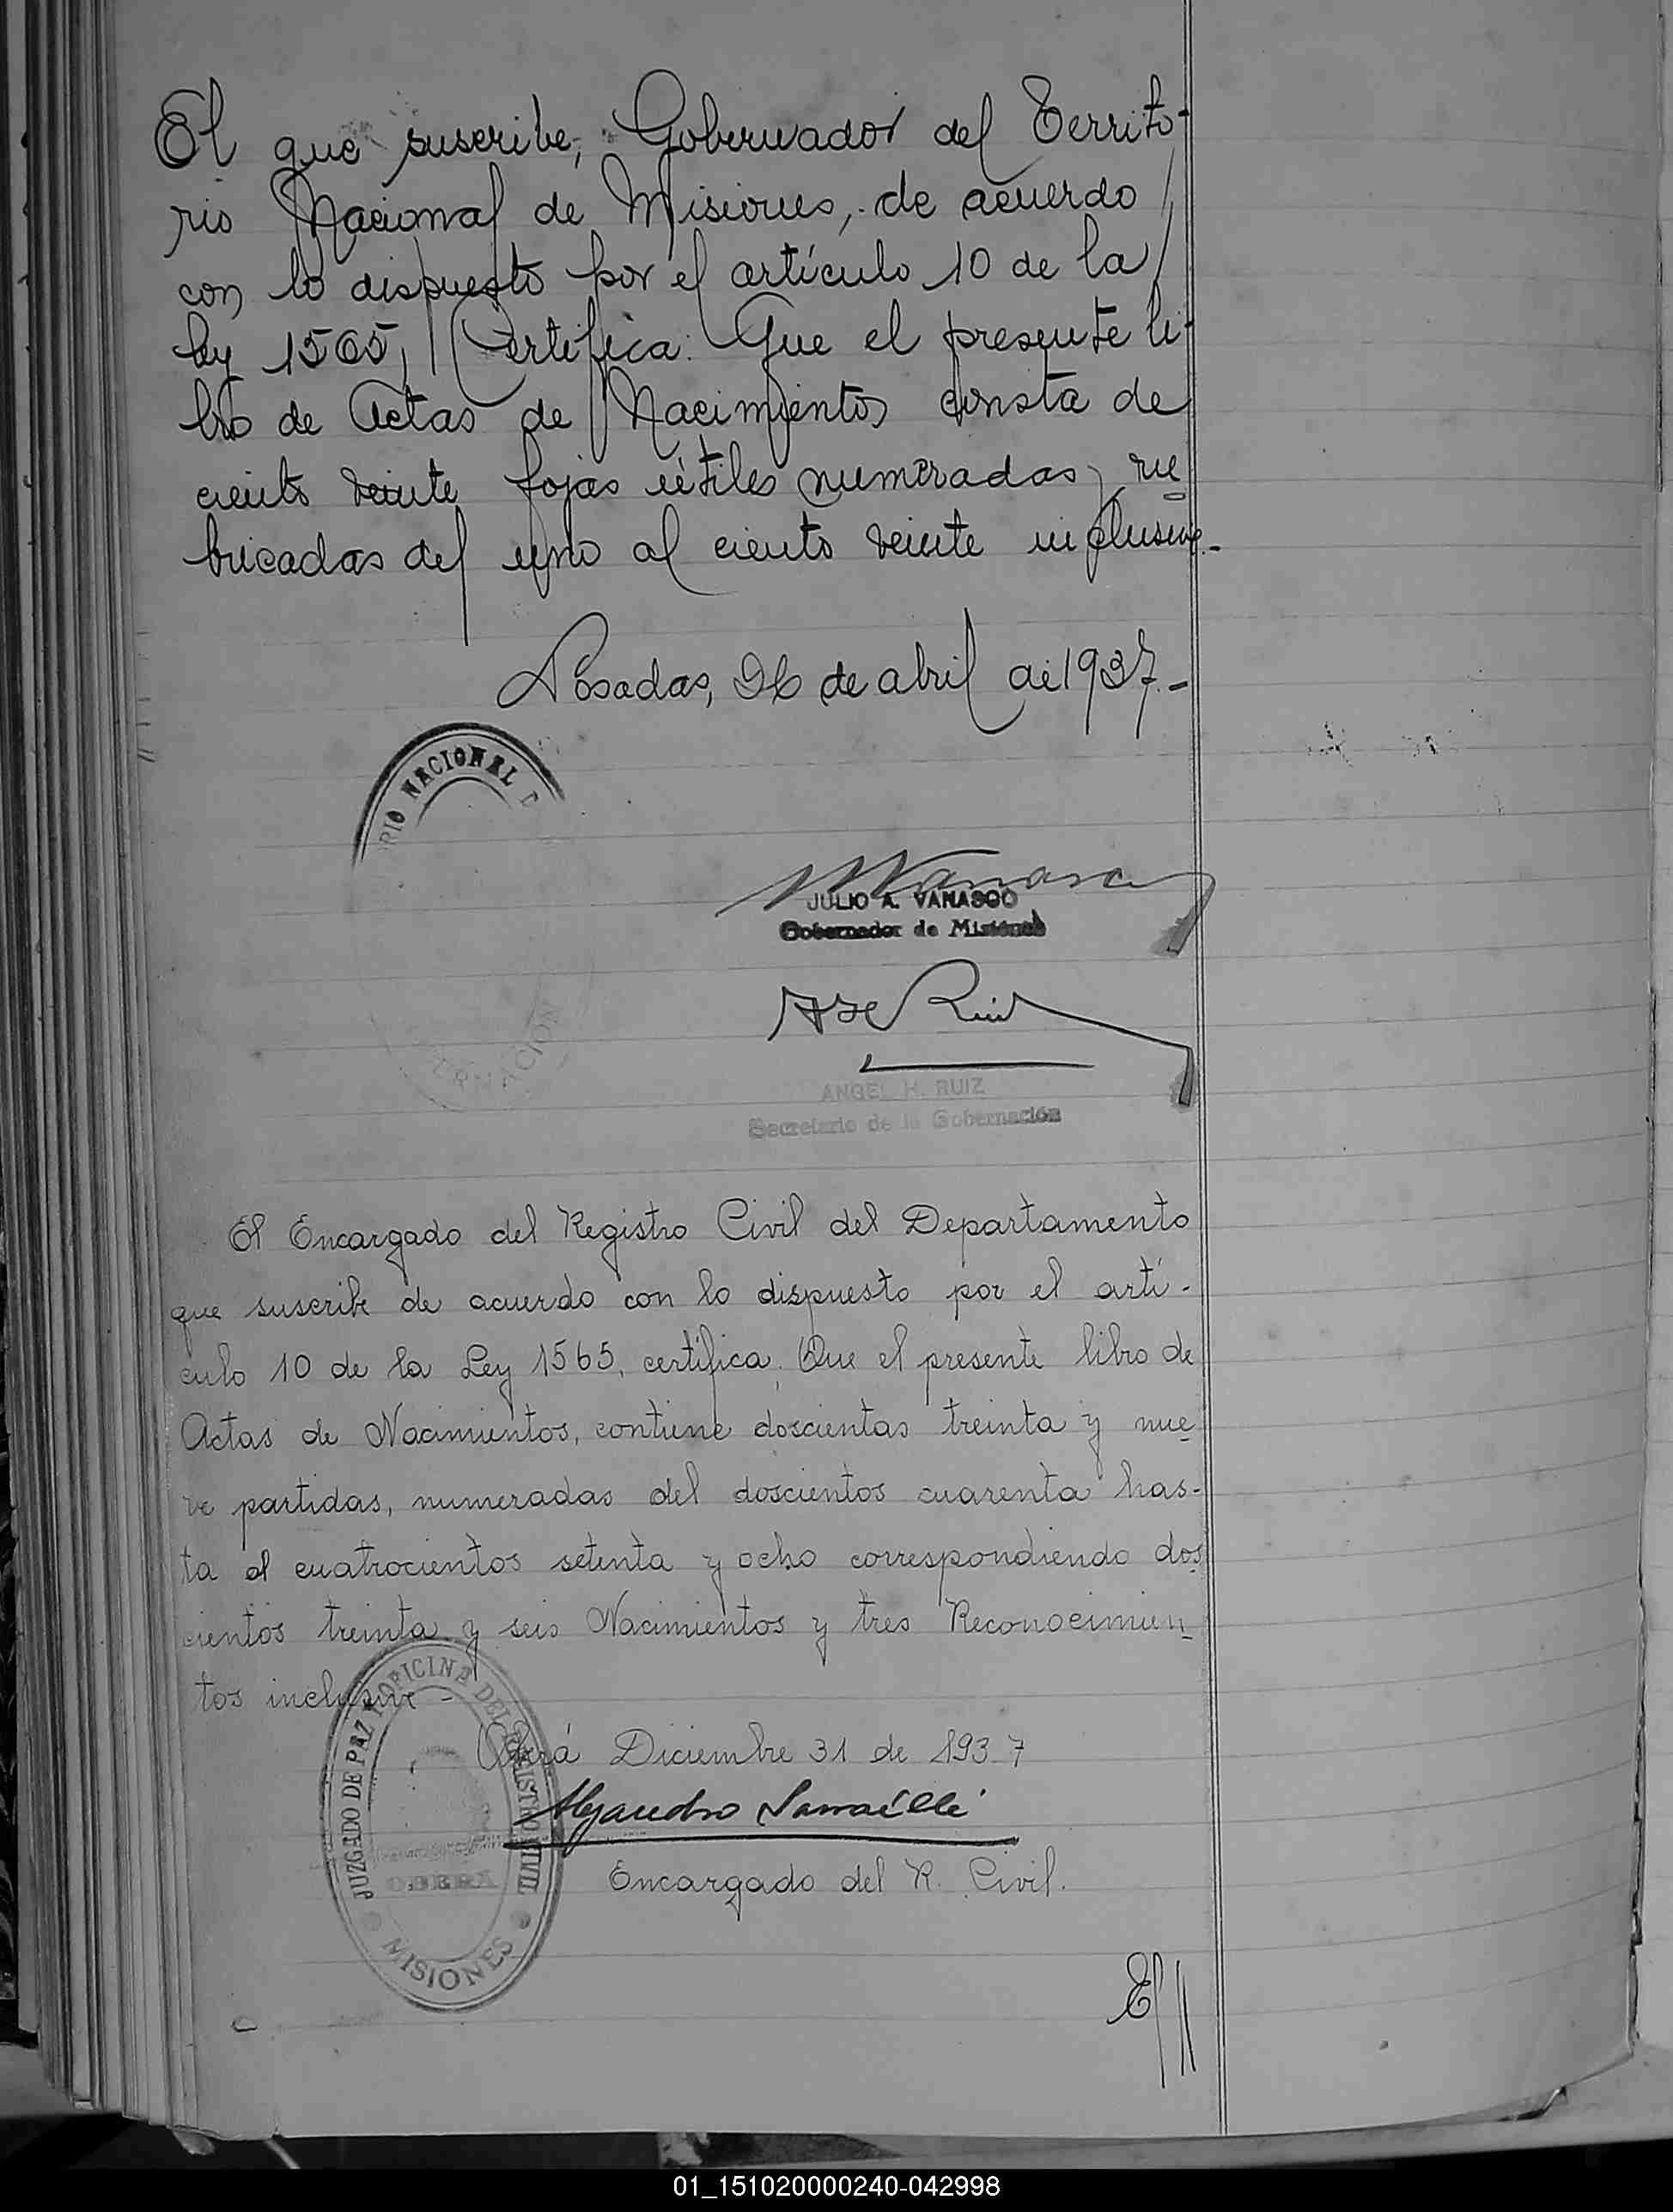 El que suscribe, Gobernador del Territo-
rio Nacional de Misiones, de acuerdo
con lo dispuesto por el artículo 10 de la
ley 1565, Certifica: Que el presente li-
bro de Actas de Nacimientos consta de
ciento veinte fojas útiles numeradas y ru
bricadas del uno al ciento veinte inclusive.-
Posadas, 26 de abril de 1937.-
RIO NACIONAL D
JULIO A. VANASCO
Gobernador de Misiones
ERNACION
ANGEL H. RUIZ
Secretario de la Gobernación
El Encargado del Registro Civil del Departamento
que suscribe de acuerdo con lo dispuesto por el artí-
culo 10 de la Ley 1565, certifica: Que el presente libro de
Actas de Nacimientos, contiene doscientas treinta y nue
ve partidas, numeradas del doscientos cuarenta has-
ta el cuatrocientos setenta y ocho correspondiendo dos
cientos treinta y seis Nacimientos y tres Reconocimien
tos inclusive -
Oberá Diciembre 31 de 1937
JUZGADO DE PAZ Y OFICINA DEL REGISTRO CIVIL
OBERA
MISIONES
Alejandro
Encargado del R. Civil.
01_151020000240-042998